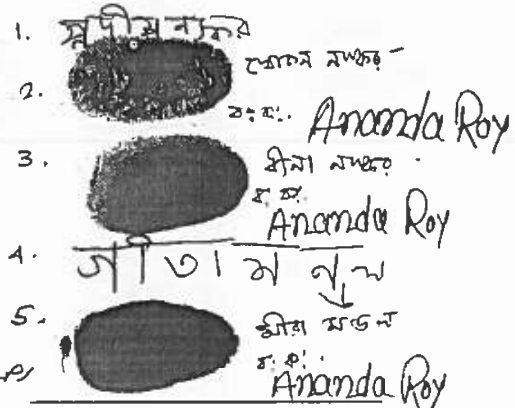 1. সুদীপ্ত নস্কর
2. খোকন নস্কর
বঃ কঃ Ananda Roy
3. মীনা নস্কর
ব. কঃ
Ananda Roy
4. গীতা মণ্ডল
5. মীরা মণ্ডল
ব. কঃ
Ananda Roy